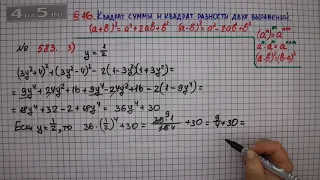 4 на 5 .ru
§ 16. Квадрат суммы и квадрат разности двух выражений.
(a+b)²=a²+2ab+b² (a-b)²=a²-2ab+b²
№ 583. 3) y = 1/2
(3y²+4)²+(3y²-4)²-2(1-3y²)(1+3y²)=
= 9y⁴+24y²+16+9y⁴-24y²+16-2(1-9y⁴)=
= 18y⁴+32-2+18y⁴= 36y⁴+30
Если y=1/2, то 36·(1/2)⁴+30 =
+30= 9/4+30=